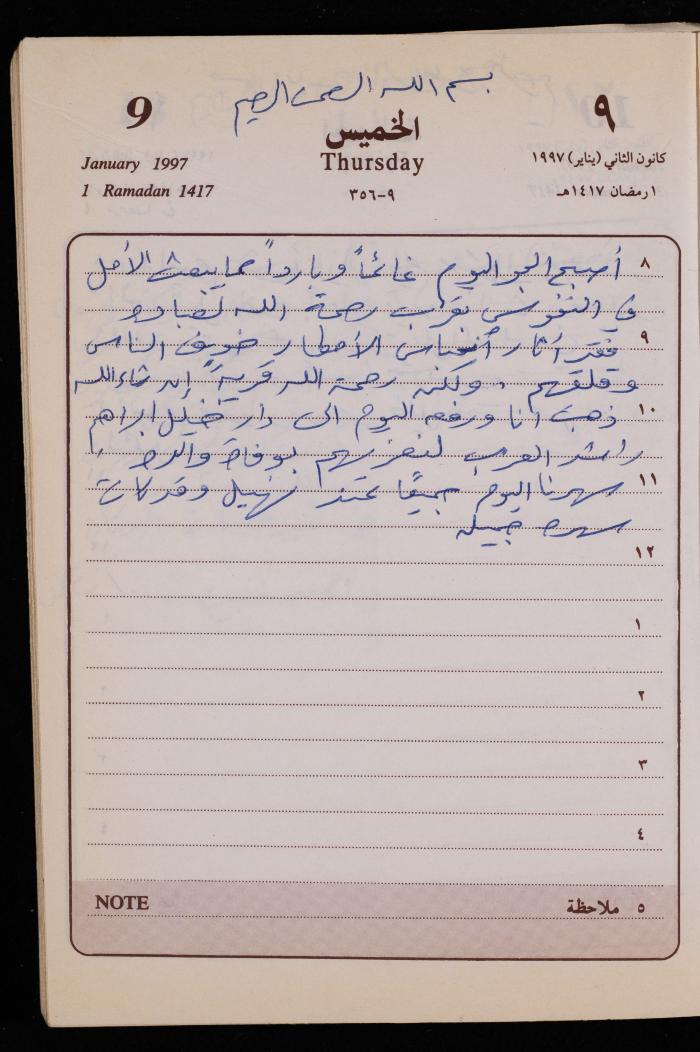 بسم الله الرحمن الرحيم
9
٩
الخميس
January 1997
Thursday
كانون الثاني (يناير) ١٩٩٧
1 Ramadan 1417
٩-٣٥٦
١ رمضان ١٤١٧هـ
٨ أصبح الجو اليوم غائماً وبارداً مما يبعث الأمل
في النفوس بقرب رحمة الله لعباده
٩ فقد أثار انحباس الأمطار خوف الناس
وقلقهم . ولكن رحمة الله قريبة إن شاء الله
١٠ ذهبت أنا ورفعه اليوم الى دار خليل ابراهم
راشد العرب لنعزيهم بوفاة والده
١١ سهرنا اليوم جميعًا عند نهيل وقد كانت
سهره جميله
١٢
١
٢
٣
٤
NOTE
٥ ملاحظة